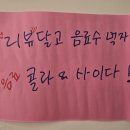 "리뷰"달고 음료수 먹자
콜라 & 사이다!